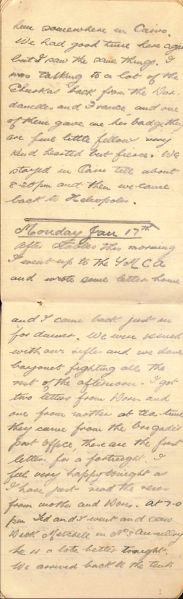 here somewhere in Cairo.
We had good time here again
but I saw the same things. I
was talking to a lot of the
Ghurkas back from the Dar-
danelles and France and one
of them gave me his badge they
are fine little fellows very
kind hearted but fierce. We
stayed in Cairo till about
8-20pm and then we came
back to Heliopolis.
Monday Jan 17th
After this morning
I went up to the YMCA
and wrote some letters home
and I came back just in
for dinner. We were issued
with our rifles and we done
bayonet fighting all the
rest of the afternoon. I got
two letters from Dorn and
one from mother at tea time
they came from the Brigade
Post Office, those are the first
letters for a fortnight. I
feel very happy tonight as
I have just read the news
from mother and Dorn. At 7.0
pm Ed and I went and saw
Dick in
he is a lot better tonight.
We arrived back to the tent